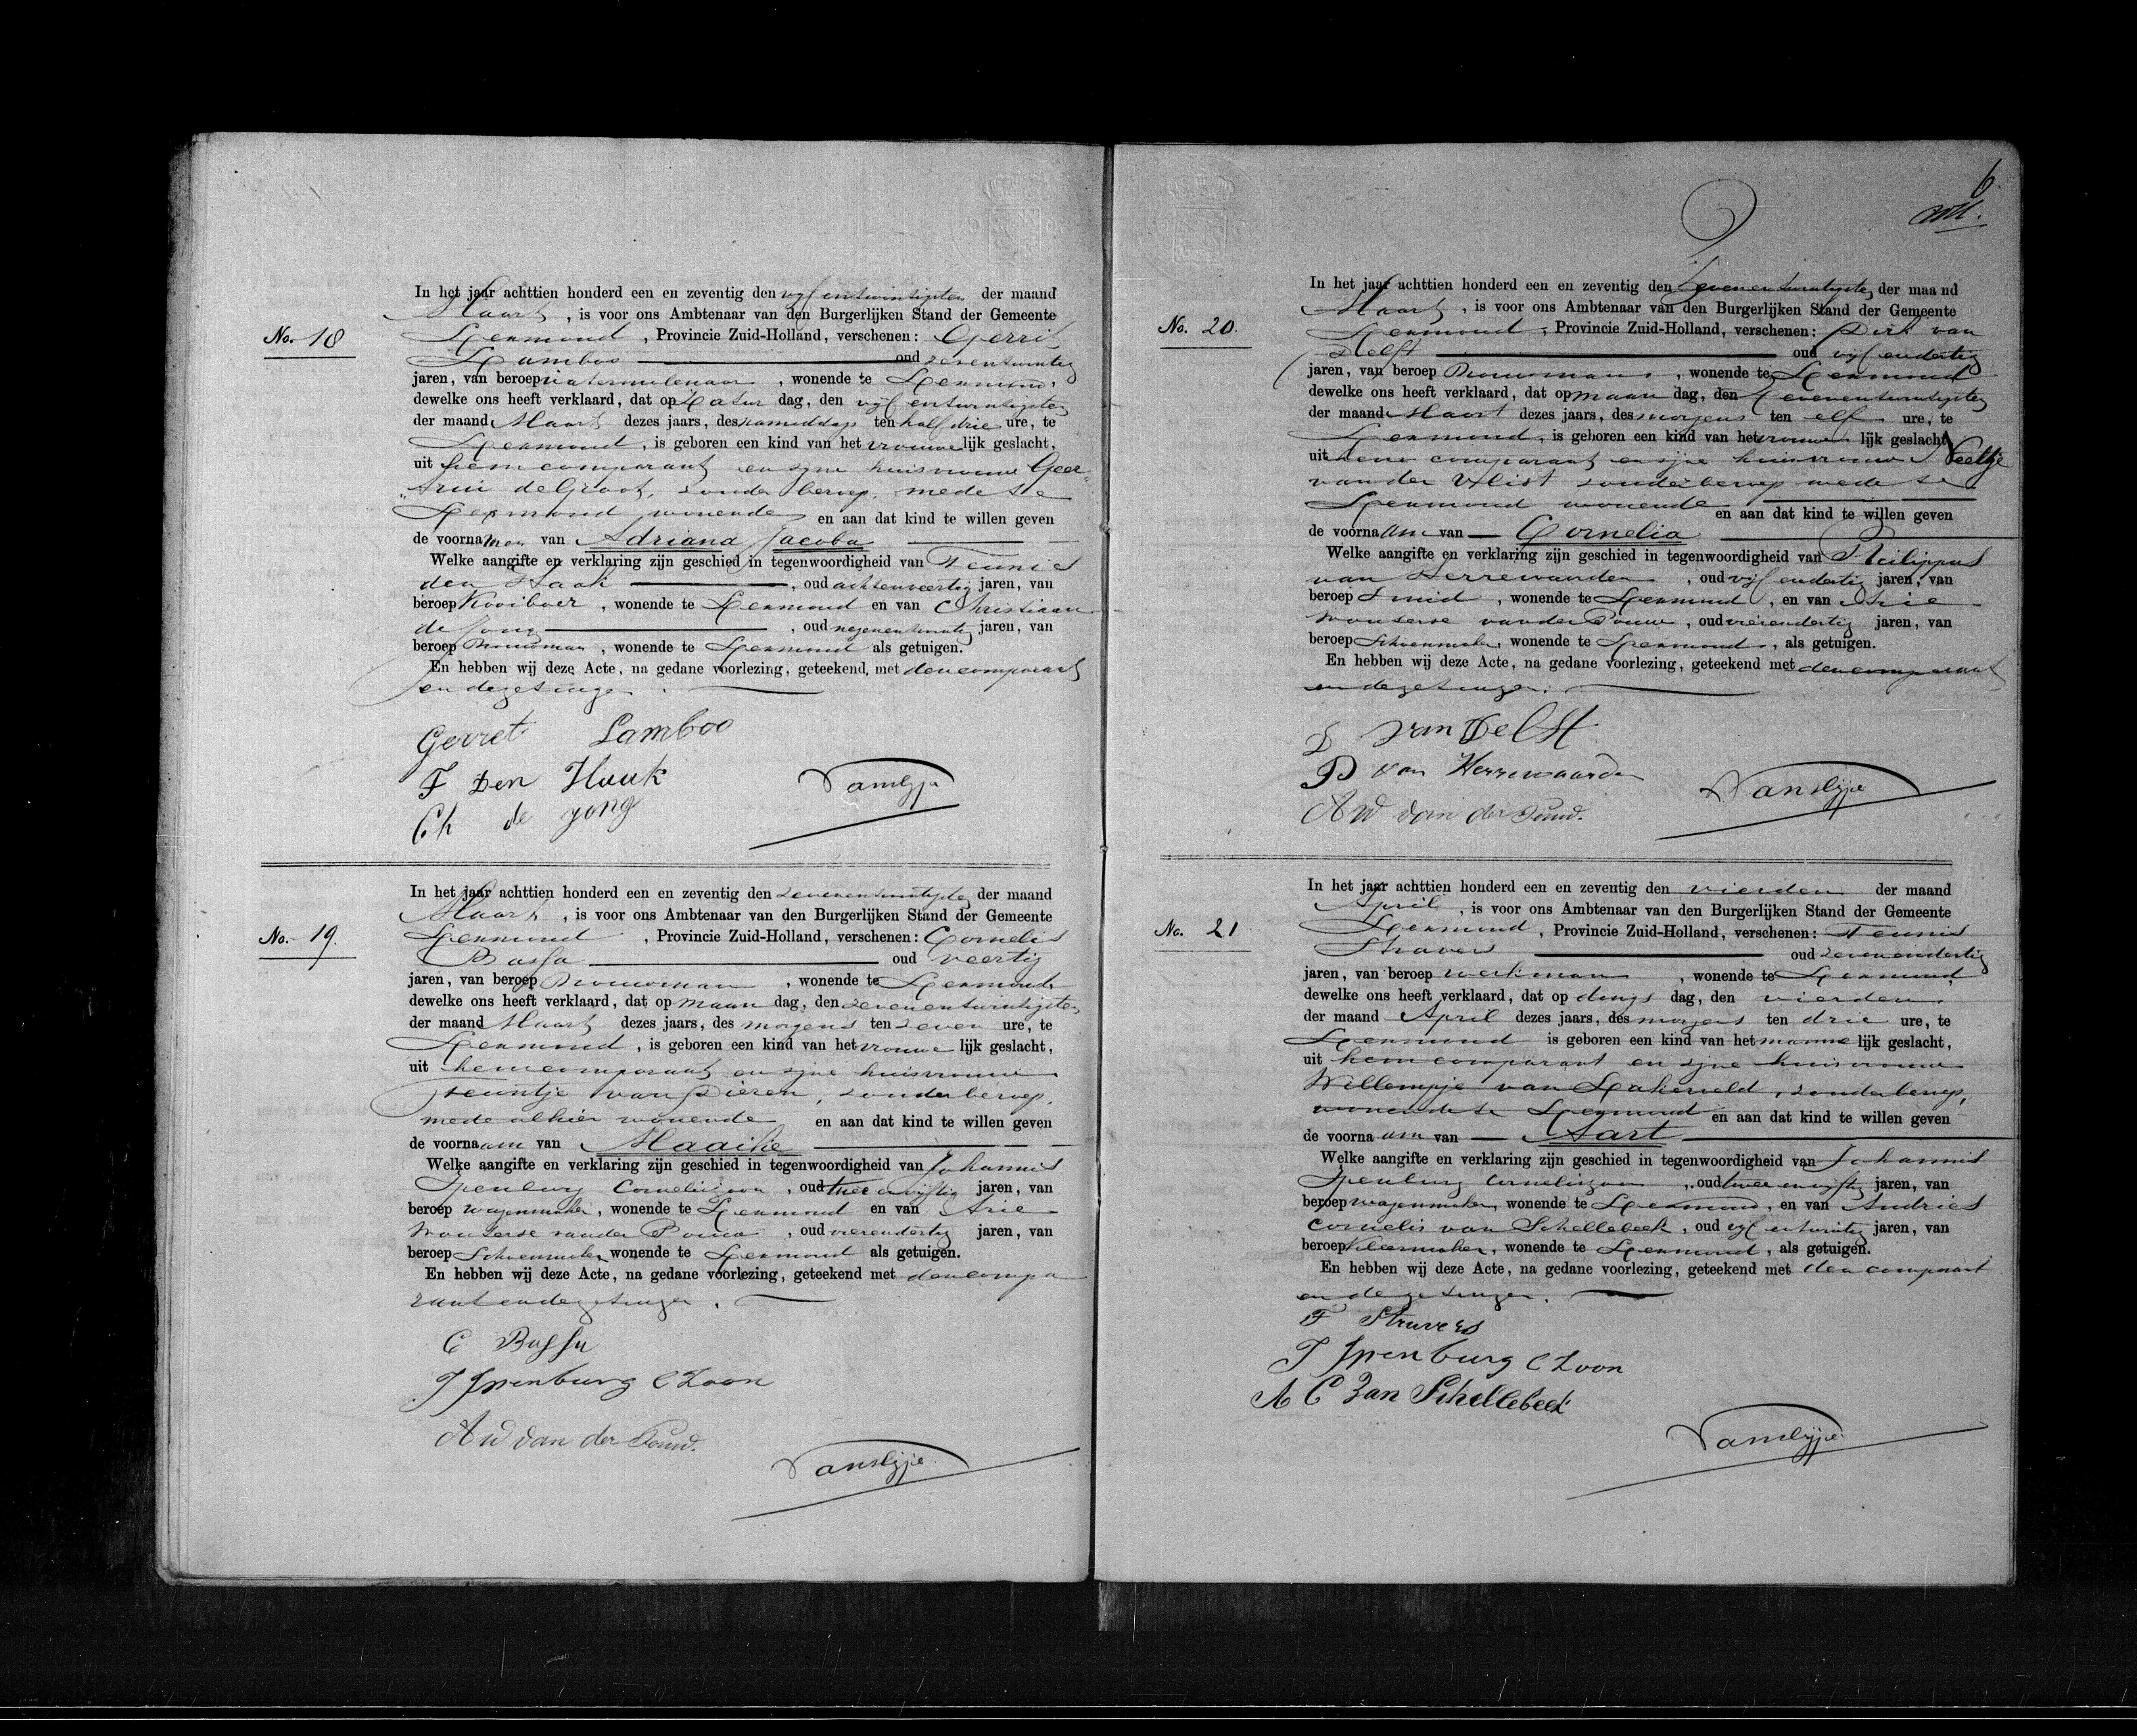 No. 18
In het jaar achttien honderd een en zeventig den vijf entwintigsten der maand
Maart, is voor ons Ambtenaar van den Burgerlijken Stand der Gemeente
Lexmond, Provincie Zuid-Holland, verschenen: Gerrit
Lamboo oud zevenentwintig
jaren, van beroep watermolenaar, wonende te Lexmond,
dewelke ons heeft verklaard, dat op Zatur dag, den vijf entwintigsten
der maand Maart dezes jaars, des namiddags ten half drie ure, te
Lexmond, is geboren een kind van het vrouwe lijk geslacht,
uit hem comparant en zijne huisvrouw Geer-
„trui de Groot, zonder beroep, mede te
Lexmond wonende en aan dat kind te willen geven
de voornamen van Adriana Jacoba
Welke aangifte en verklaring zijn geschied in tegenwoordigheid van Teunis
den Haak, oud achtenveertig jaren, van
beroep Kooiboer, wonende te Lexmond en van Christiaan
de Jong, oud negenentwintig jaren, van
beroep Bouwman, wonende te Lexmond als getuigen.
En hebben wij deze Acte, na gedane voorlezing, geteekend, met den comparant
en de getuigen.
Gerret Lamboo
T Den Haak
Ch de jong
Vanslype
No. 19.
In het jaar achttien honderd een en zeventig den zevenentwintigsten der maand
Maart, is voor ons Ambtenaar van den Burgerlijken Stand der Gemeente
Lexmond, Provincie Zuid-Holland, verschenen: Cornelis
Bassa oud veertig
jaren, van beroep Bouwman, wonende te Lexmond,
dewelke ons heeft verklaard, dat op maan dag, den zevenentwintigsten
der maand Maart dezes jaars, des morgens ten zeven ure, te
Lexmond, is geboren een kind van het vrouwe lijk geslacht,
uit hem comparant en zijne huisvrouw
Teuntje van Dieren, zonder beroep,
mede alhier wonende en aan dat kind te willen geven
de voornaam van Maaike
Welke aangifte en verklaring zijn geschied in tegenwoordigheid van Johannis
Ipenburg Corneliszoon, oud twee envijftig jaren, van
beroep wagenmaker, wonende te Lexmond en van Arie
Wouterse van der Pouw, oud vierendertig jaren, van
beroep Schoenmaker wonende te Lexmond als getuigen.
En hebben wij deze Acte, na gedane voorlezing, geteekend met den compa
rant en de getuigen.
C Bassa
J Ipenburg C Zoon
AW van der Pouw.
Vanslype
6.
No. 20.
In het jaar achttien honderd een en zeventig den Zevenentwintigsten der maand
Maart, is voor ons Ambtenaar van den Burgerlijken Stand der Gemeente
Lexmond, Provincie Zuid-Holland, verschenen: Dirk van
Delft oud vijf endertig
jaren, van beroep Bouwman, wonende te Lexmond
dewelke ons heeft verklaard, dat op maan dag, den Zevenentwintigsten
der maand Maart dezes jaars, des morgens ten elf ure, te
Lexmond, is geboren een kind van het vrouwe lijk geslacht,
uit hem comparant en zijne huisvrouw Neeltje
van der Vlist zonder beroep mede te
Lexmond wonende en aan dat kind te willen geven
de voornaam van Cornelia
Welke aangifte en verklaring zijn geschied in tegenwoordigheid van Philippus
van Herrewaarden, oud vijf endertig jaren, van
beroep Smid, wonende te Lexmond, en van Arie
Wouterse van der Pouw, oud vierendertig jaren, van
beroep Schoenmaker, wonende te Lexmond, als getuigen.
En hebben wij deze Acte, na gedane voorlezing, geteekend met den comparant
en de getuigen.
D van Delft
P van Herrewaarden
AW van der Pouw.
Vanslype
No. 21
In het jaar achttien honderd een en zeventig den vierden der maand
April, is voor ons Ambtenaar van den Burgerlijken Stand der Gemeente
Lexmond, Provincie Zuid-Holland, verschenen: Teunis
Stravers oud zevenendertig
jaren, van beroep werkman, wonende te Lexmond,
dewelke ons heeft verklaard, dat op dings dag, den vierden
der maand April dezes jaars, des morgens ten drie ure, te
Lexmond is geboren een kind van het manne lijk geslacht,
uit hem comparant en zijne huisvrouw
Willempje van Lakerveld, zonder beroep,
wonende te Lexmond en aan dat kind te willen geven
de voornaam van Aart
Welke aangifte en verklaring zijn geschied in tegenwoordigheid van Johannis
Ipenburg Corneliszoon, oud twee envijftig jaren, van
beroep wagenmaker, wonende te Lexmond, en van Andries
Cornelis van Schellebeek, oud vijf entwintig jaren, van
beroep Kleermaker, wonende te Lexmond, als getuigen.
En hebben wij deze Acte, na gedane voorlezing, geteekend met den comparant
en de getuigen.
T Stravers
J Ipenburg C Zoon
A C Van Schellebeek
Vanslype